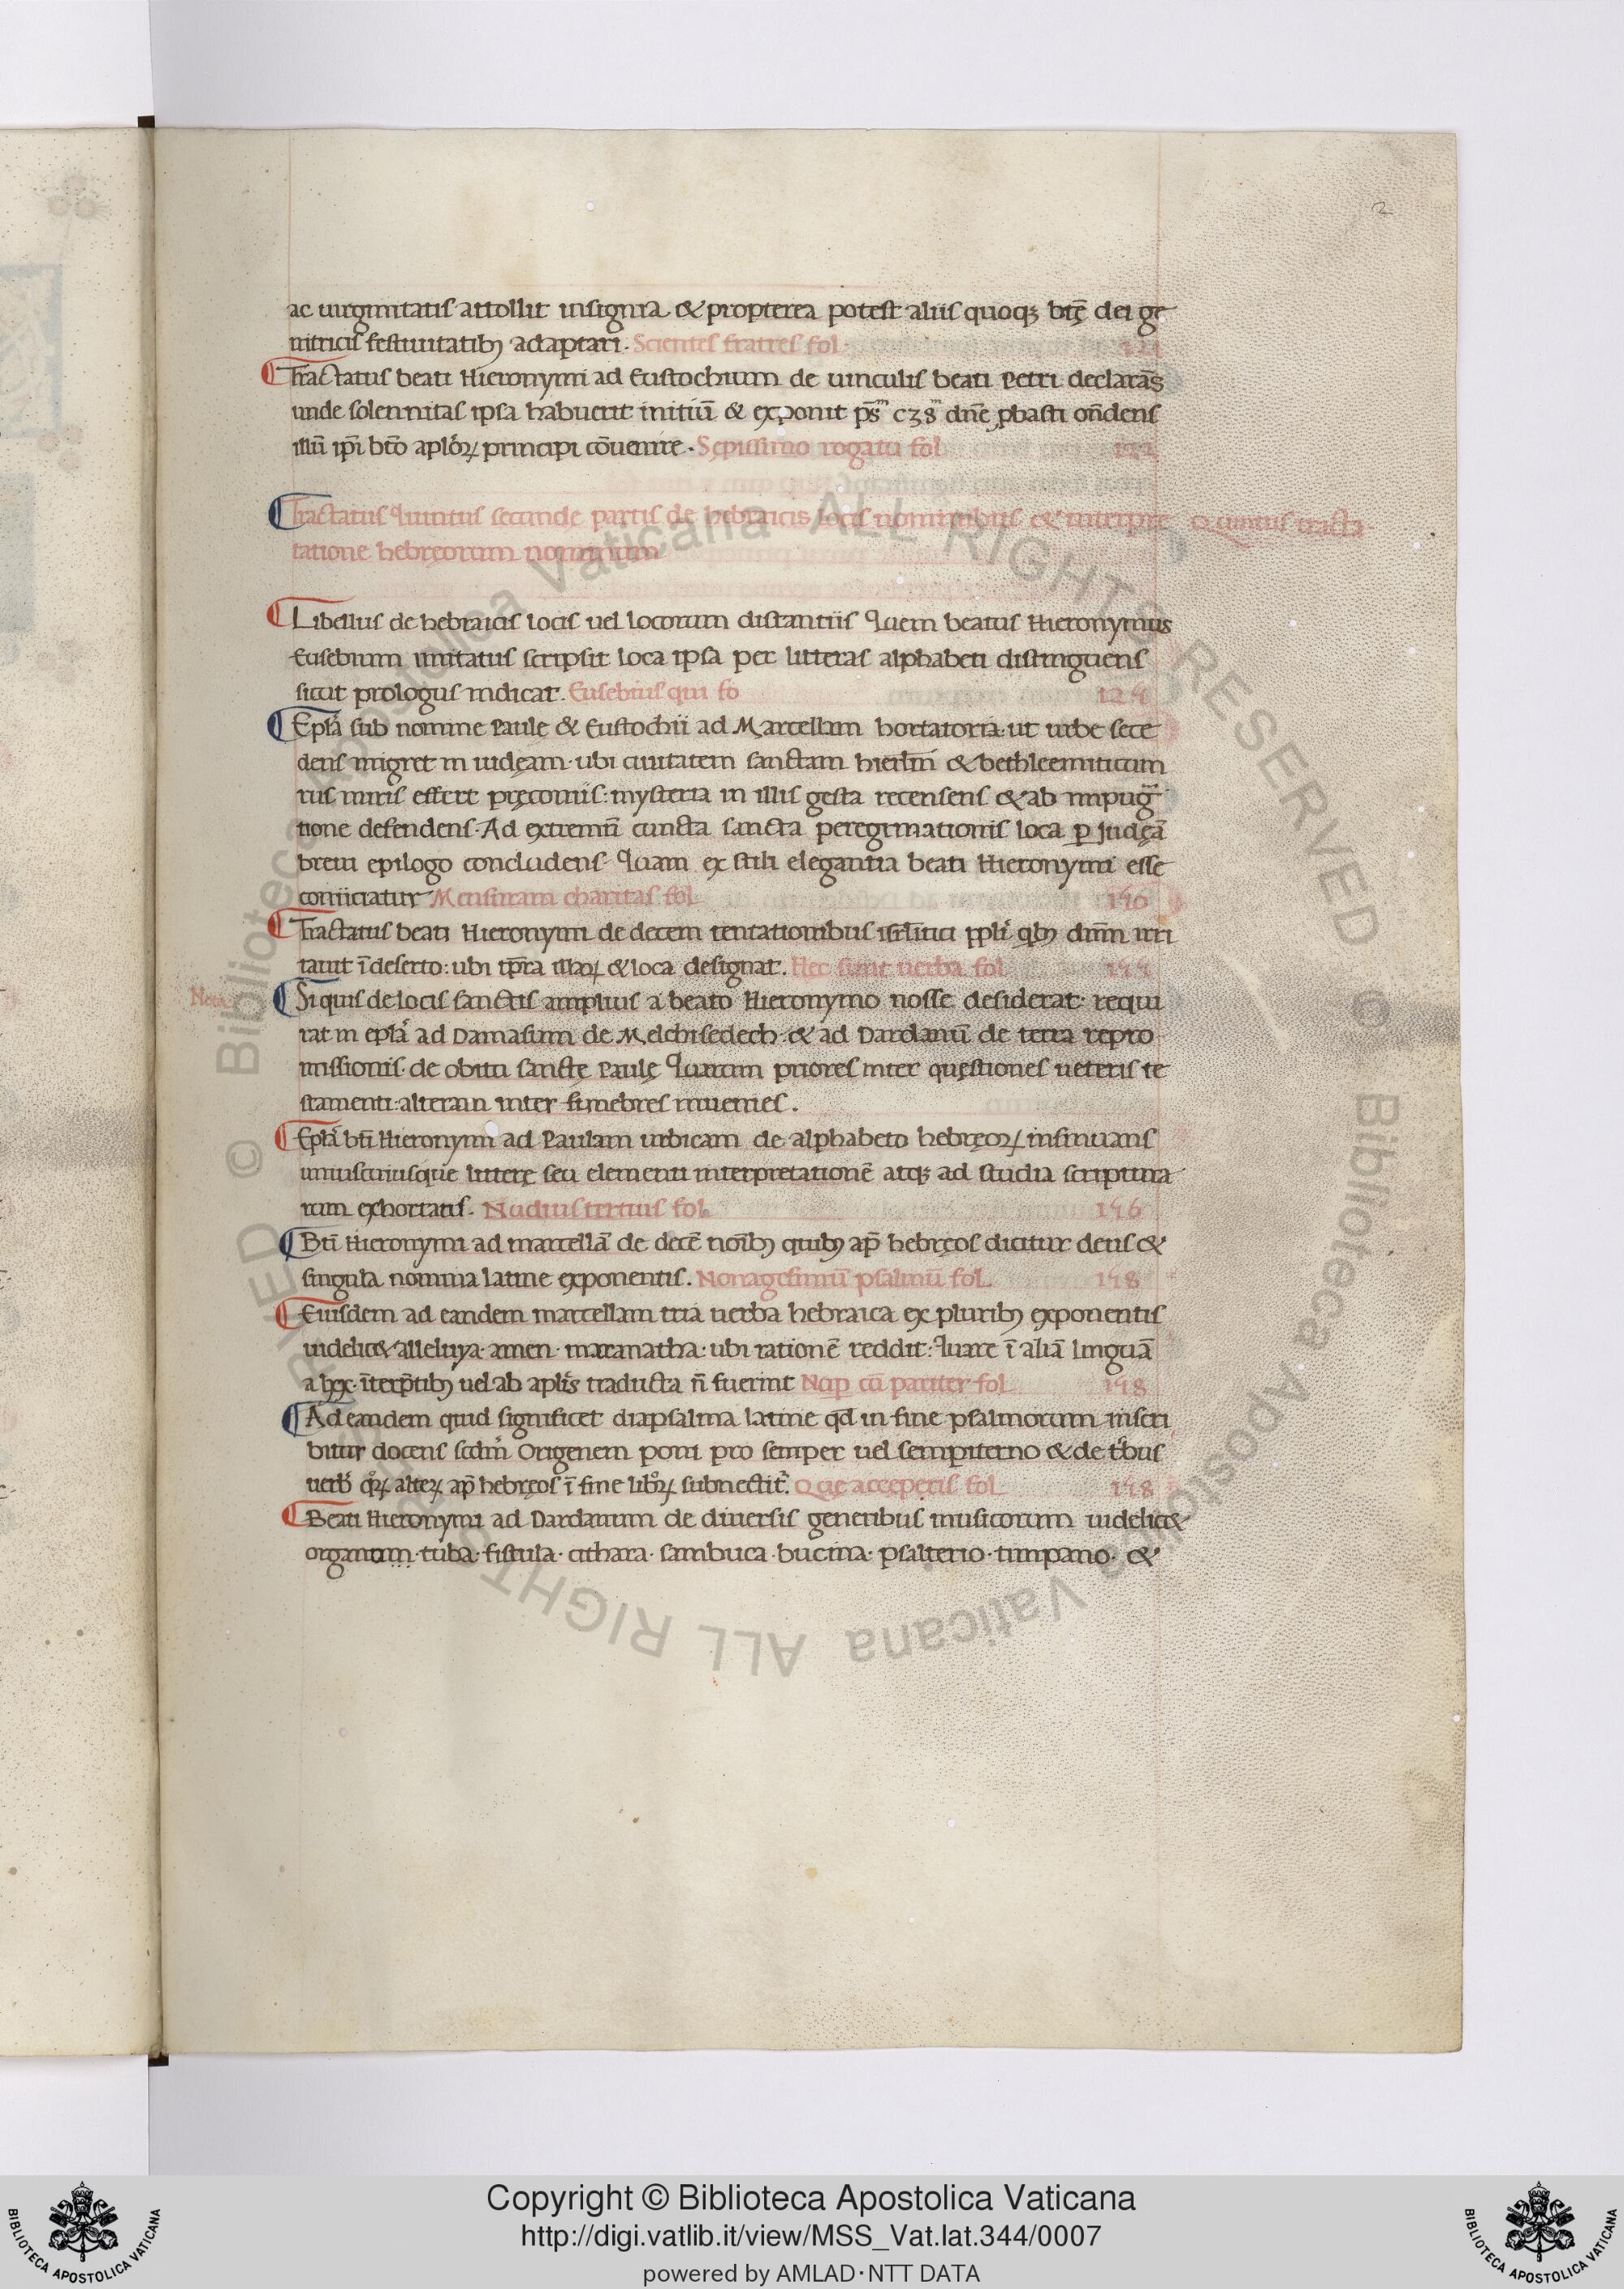 2
ac uirginitatis attollit insignia & propterea potest aliis quoqȝ btę̄ dei ge
nitricis festiuitatibꝰ adaptari. Scientes fratres fol. 121
Tractatus beati Hieronymi ad Eustochium de uinculis beati Petri declarās
unde solennitas ipsa habuerit initiū & exponit ps̄ᵐ c38ᵐ dn̄e ꝓbasti on̄dens
illū ip̄i bt̄o aplo᷒ꝝ principi cōuenire. Sępissimo rogatu fol
Tractatus Quintus secunde partis de hebraicis locis nominibus & interpre
Quintus tracta
tatione hebręorum nominum
Libellus de hebraicis locis uel locorum distantiis Quem beatus Hieronymus
Eusebium imitatus scripsit loca ipsa per litteras alphabeti distinguens
sicut prologus indicat. Eusebius qui fo 124
Epl̄a sub nomine Paule & Eustochii ad Marcellam hortatoria: ut urbe sece
dens migret in iudęam. ubi ciuitatem sanctam hierl̄m & bethleemiticum
rus miris effert pręconiis: mysteria in illis gesta recensens & ab impug
tione defendens. Ad extremū cuncta sancta peregrinationis loca ꝑ Judęā
breui epilogo concludens. Quam ex stili elegantia beati Hieronymi esse
coniiciatur Mensuram charitas fol 140
Tractatus beati Hieronymi de decem tentationibus isrl̄itici ppl̄i qbꝰ dn̄m irri
tauit ī deserto: ubi tp̄ra illaꝝ & loca designat. Hec sunt uerba fol 144
Nota
Si quis de locis sanctis amplius a beato Hieronymo nosse desiderat: requi
rat in epl̄a ad Damasum de Melchisedech. & ad Dardanū de terra repro
missionis. de obitu sanctę Paulę Quarum priores inter quęstiones ueteris te
stamenti: alteram inter funebres inuenies.
Epl̄a bt̄i Hieronymi ad Paulam urbicam de alphabeto hebręoꝝ insinuans
uniuscuiusque litterę seu elementi interpretationē atqȝ ad studia scriptura
rum exhortatis. Nudius tertius fol. 146
Bt̄i Hieronymi ad marcellā de decē noībꝰ quibꝰ ap̄ hebręos dicitur deus &
singula nomina latine exponentis. Nonagesimū psalmū fol. 148
Eiusdem ad eandem marcellam tria uerba hebraica ex pluribꝰ exponentis
uidelic& alleluya. amen. maranatha: ubi rationē reddit: Quare ī aliā linguā
a lxx. īterp̄tibꝰ uel ab apl̄is traducta n̄ fuerint Nup̱ cū pariter fol 148
Ad eandem quid significet diapsalma latine qd̄ in fine psalmorum inscri
bitur docens scdm̄ Origenem poni pro semper uel sempiterno & de tⁱbus
uerbⁱ qᵒꝝ alteꝝ ap̄ hebręos ī fine libᵒꝝ subnectit᷑. Quę acceperis fol 148
Beati Hieronymi ad Dardanum de diuersis generibus musicorum uidelic&
organum. tuba. fistula. cithara. sambuca. bucina. psalterio. timpano. &
Copyright © Biblioteca Apostolica Vaticana
http://digi.vatlib.it/view/MSS_Vat.lat.344/0007
powered by AMLAD·NTT DATA
BIBLIOTECA APOSTOLICA VATICANA
BIBLIOTECA APOSTOLICA VATICANA
© Biblioteca Apostolica Vaticana ALL RIGHTS RESERVED © Biblioteca Apostolica Vaticana ALL RIGHTS RESERVED